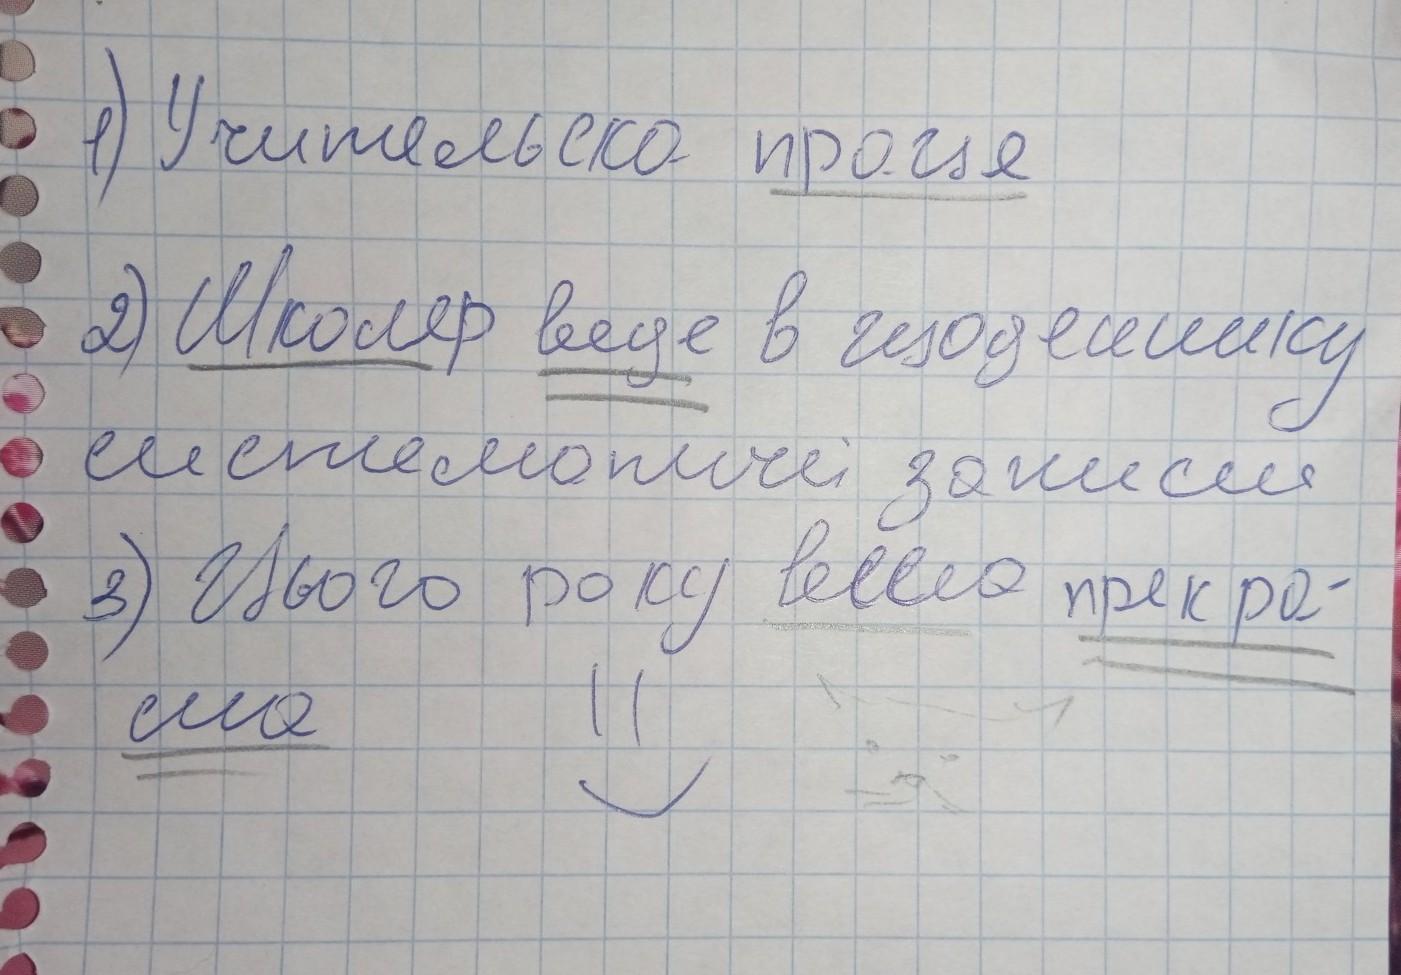 1) Учительска праця
2) Школяр веде в щоденнику
систематичні записи
3) Цього року весна прекра-
сна